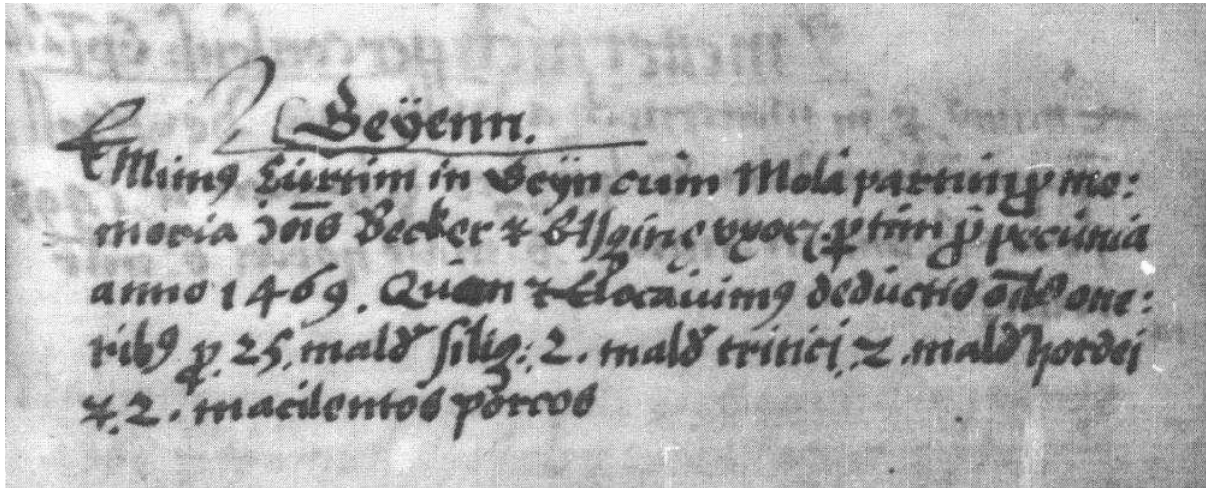 Seÿenn.
Emimus Curtim in Seÿn cum Mola partim p me:
moria Joīs Becker & uxor partim p pecunia
anno 1469. Quam & Elocauimus deductis oībs one:
ribus p. 25. mald silig: 2. mald tritici, 2. mald hordei
&. 2. macilentos porcos